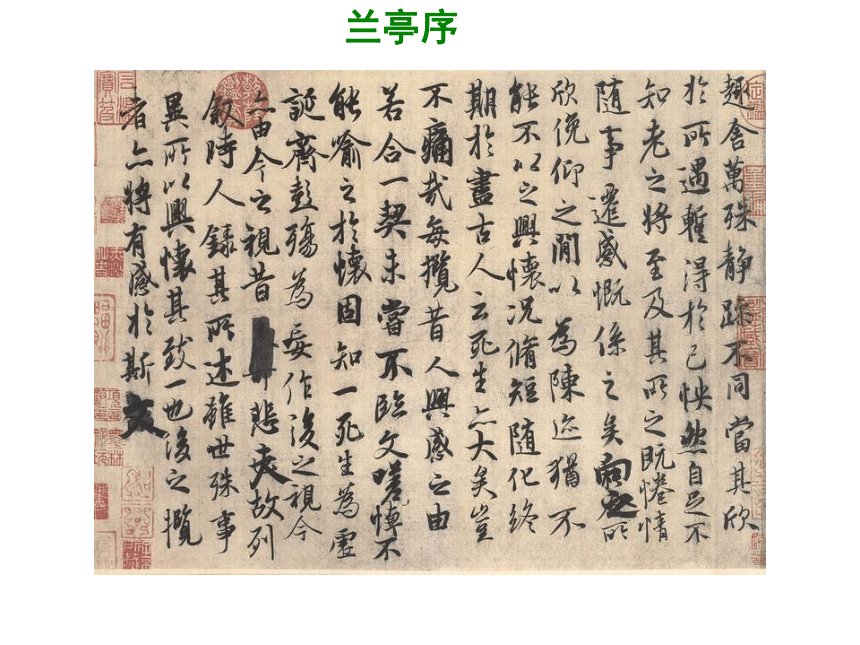 兰亭序
趣舍萬殊静躁不同當其欣
於所遇蹔得於己怏然自足不
知老之將至及其所之既惓情
随事遷感慨係之矣向之所
欣俛仰之閒以為陳迹猶不
能不以之興懷況脩短随化終
期於盡古人云死生亦大矣豈
不痛哉每攬昔人興感之由
若合一契未嘗不臨文嗟悼不
能喻之於懷固知一死生為虛
誕齊彭殤為妄作後之視今
亦由今之視昔悲夫故列
叙時人錄其所述雖世殊事
異所以興懷其致一也後之攬
者亦將有感於斯文